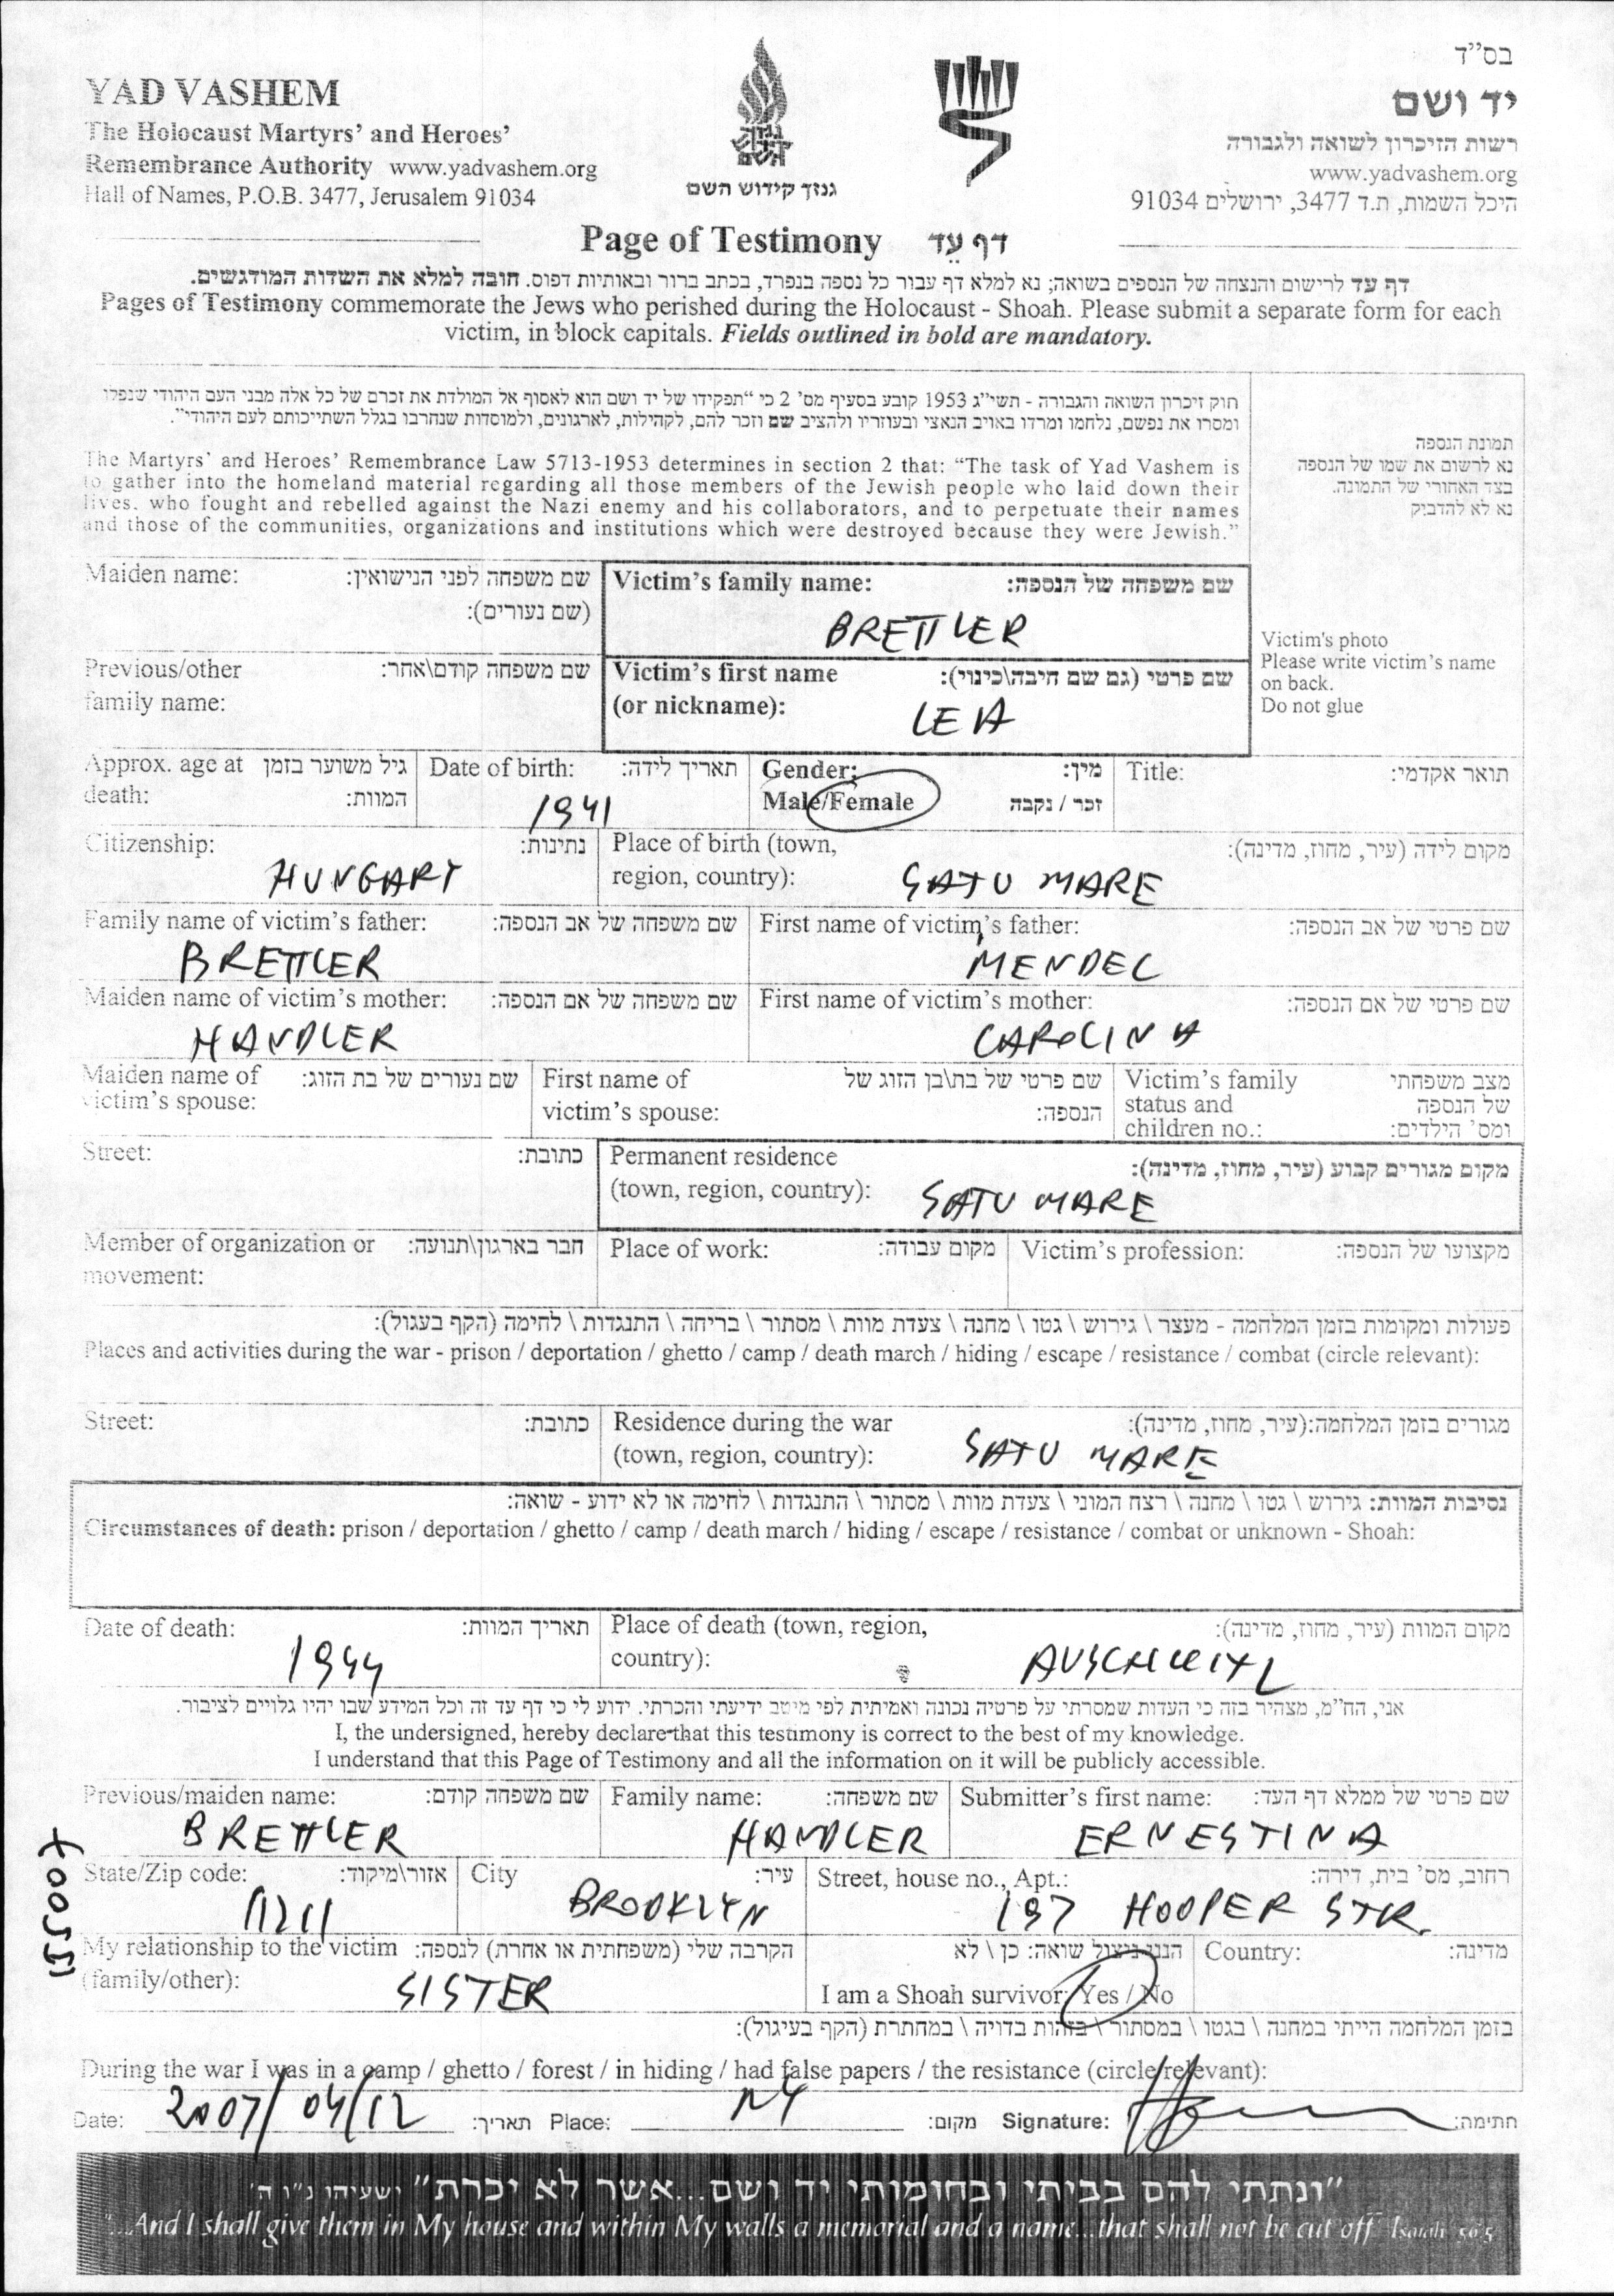 בס״ד
YAD VASHEM
The Holocaust Martyrs' and Heroes'
Remembrance Authority www.yadvashem.org
Hall of Names, P.O.B. 3477, Jerusalem 91034
גנזך קידוש השם
יד ושם
רשות הזיכרון לשואה ולגבורה
www.yadvashem.org
היכל השמות, ת.ד 3477, ירושלים 91034
Page of Testimony דף עֵד
דף עד לרישום והנצחה של הנספים בשואה; נא למלא דף עבור כל נספה בנפרד, בכתב ברור ובאותיות דפוס. חובה למלא את השדות המודגשים.
Pages of Testimony commemorate the Jews who perished during the Holocaust - Shoah. Please submit a separate form for each
victim, in block capitals. Fields outlined in bold are mandatory.
חוק זיכרון השואה והגבורה - תשי״ג 1953 קובע בסעיף מס' 2 כי "תפקידו של יד ושם הוא לאסוף אל המולדת את זכרם של כל אלה מבני העם היהודי שנפלו
ומסרו את נפשם, נלחמו ומרדו באויב הנאצי ובעוזריו ולהציב שם וזכר להם, לקהילות, לארגונים, ולמוסדות שנחרבו בגלל השתייכותם לעם היהודי".
The Martyrs' and Heroes' Remembrance Law 5713-1953 determines in section 2 that: "The task of Yad Vashem is
to gather into the homeland material regarding all those members of the Jewish people who laid down their
lives, who fought and rebelled against the Nazi enemy and his collaborators, and to perpetuate their names
and those of the communities, organizations and institutions which were destroyed because they were Jewish."
תמונת הנספה
נא לרשום את שמו של הנספה
בצד האחורי של התמונה.
נא לא להדביק
Victim's photo
Please write victim's name
on back.
Do not glue
Maiden name: שם משפחה לפני הנישואין:
(שם נעורים):
Victim's family name: שם משפחה של הנספה:
BRETTLER
Previous/other שם משפחה קודם\אחר:
family name:
Victim's first name שם פרטי (גם שם חיבה\כינוי):
(or nickname):
LEIA
Approx. age at גיל משוער בזמן
death: המוות:
Date of birth: תאריך לידה:
1941
Gender: מין:
Male/Female זכר / נקבה
Title: תואר אקדמי:
Citizenship: נתינות:
HUNGARY
Place of birth (town, מקום לידה (עיר, מחוז, מדינה):
region, country): SATU MARE
Family name of victim's father: שם משפחה של אב הנספה:
BRETTLER
First name of victim's father: שם פרטי של אב הנספה:
MENDEL
Maiden name of victim's mother: שם משפחה של אם הנספה:
HANDLER
First name of victim's mother: שם פרטי של אם הנספה:
CAROLINA
Maiden name of שם נעורים של בת הזוג:
victim's spouse:
First name of שם פרטי של בת\בן הזוג של
victim's spouse: הנספה:
Victim's family מצב משפחתי
status and של הנספה
children no.: ומס' הילדים:
Street: כתובת:
Permanent residence מקום מגורים קבוע (עיר, מחוז, מדינה):
(town, region, country): SATU MARE
Member of organization or חבר בארגון\תנועה:
movement:
Place of work: מקום עבודה:
Victim's profession: מקצועו של הנספה:
פעולות ומקומות בזמן המלחמה - מעצר \ גירוש \ גטו \ מחנה \ צעדת מוות \ מסתור \ בריחה \ התנגדות \ לחימה (הקף בעגול):
Places and activities during the war - prison / deportation / ghetto / camp / death march / hiding / escape / resistance / combat (circle relevant):
Street: כתובת:
Residence during the war מגורים בזמן המלחמה:(עיר, מחוז, מדינה):
(town, region, country): SATU MARE
נסיבות המוות: גירוש \ גטו \ מחנה \ רצח המוני \ צעדת מוות \ מסתור \ התנגדות \ לחימה או לא ידוע - שואה:
Circumstances of death: prison / deportation / ghetto / camp / death march / hiding / escape / resistance / combat or unknown - Shoah:
Date of death: תאריך המוות:
1944
Place of death (town, region, מקום המוות (עיר, מחוז, מדינה):
country): AUSCHWITZ
אני, הח״מ, מצהיר בזה כי העדות שמסרתי על פרטיה נכונה ואמיתית לפי מיטב ידיעתי והכרתי. ידוע לי כי דף עד זה וכל המידע שבו יהיו גלויים לציבור.
I, the undersigned, hereby declare that this testimony is correct to the best of my knowledge.
I understand that this Page of Testimony and all the information on it will be publicly accessible.
Previous/maiden name: שם משפחה קודם:
BRETTLER
Family name: שם משפחה:
HANDLER
Submitter's first name: שם פרטי של ממלא דף העד:
ERNESTINA
State/Zip code: אזור\מיקוד:
11211
City עיר:
BROOKLYN
Street, house no., Apt.: רחוב, מס' בית, דירה:
197 HOOPER STR.
My relationship to the victim הקרבה שלי (משפחתית או אחרת) לנספה:
(family/other): SISTER
הנני ניצול שואה: כן \ לא
I am a Shoah survivor: Yes / No
Country: מדינה:
בזמן המלחמה הייתי במחנה \ בגטו \ במסתור \ בזהות בדויה \ במחתרת (הקף בעיגול):
During the war I was in a camp / ghetto / forest / in hiding / had false papers / the resistance (circle relevant):
Date: 2007/04/12 תאריך: Place: NY מקום: Signature: חתימה:
"ונתתי להם בביתי ובחומותי יד ושם...אשר לא יכרת" ישעיהו נ״ו ה'
"...And I shall give them in My house and within My walls a memorial and a name...that shall not be cut off" Isaiah 56:5